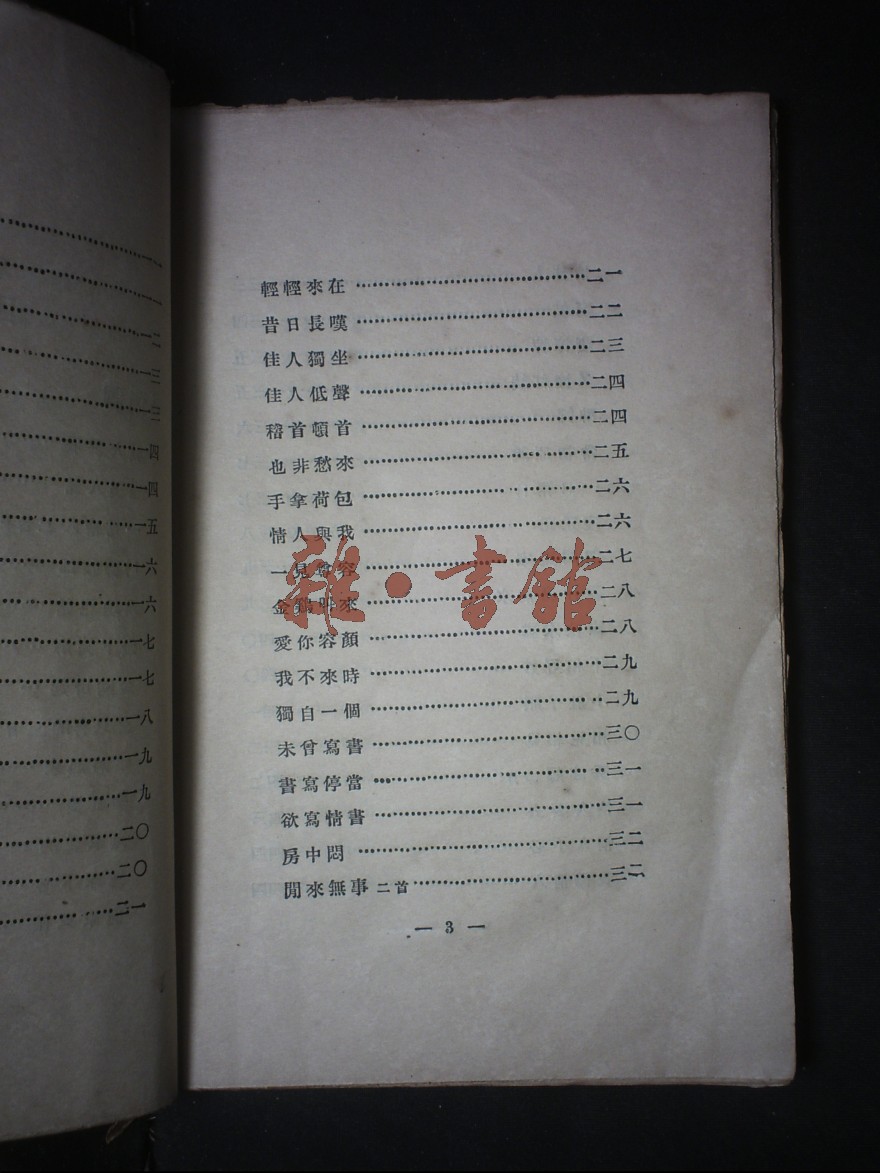 一一
一一
一二
一三
一三
一四
一四
一五
一六
一六
一七
一七
一八
一九
一九
二〇
二〇
二一
輕輕來在⋯⋯⋯⋯⋯⋯⋯⋯二一
昔日長嘆⋯⋯⋯⋯⋯⋯⋯⋯二二
佳人獨坐⋯⋯⋯⋯⋯⋯⋯⋯二三
佳人低聲⋯⋯⋯⋯⋯⋯⋯⋯二四
稽首頓首⋯⋯⋯⋯⋯⋯⋯⋯二四
也非愁來⋯⋯⋯⋯⋯⋯⋯⋯二五
手拿荷包⋯⋯⋯⋯⋯⋯⋯⋯二六
情人與我⋯⋯⋯⋯⋯⋯⋯⋯二六
一見容⋯⋯⋯⋯⋯⋯⋯⋯二七
金鷄來⋯⋯⋯⋯⋯⋯⋯⋯二八
愛你容顏⋯⋯⋯⋯⋯⋯⋯⋯二八
我不來時⋯⋯⋯⋯⋯⋯⋯⋯二九
獨自一個⋯⋯⋯⋯⋯⋯⋯⋯二九
未曾寫書⋯⋯⋯⋯⋯⋯⋯⋯三〇
書寫停當⋯⋯⋯⋯⋯⋯⋯⋯三一
欲寫情書⋯⋯⋯⋯⋯⋯⋯⋯三一
房中悶⋯⋯⋯⋯⋯⋯⋯⋯三二
閒來無事 二首⋯⋯⋯⋯⋯⋯⋯三二
— 3 —
雜·書館